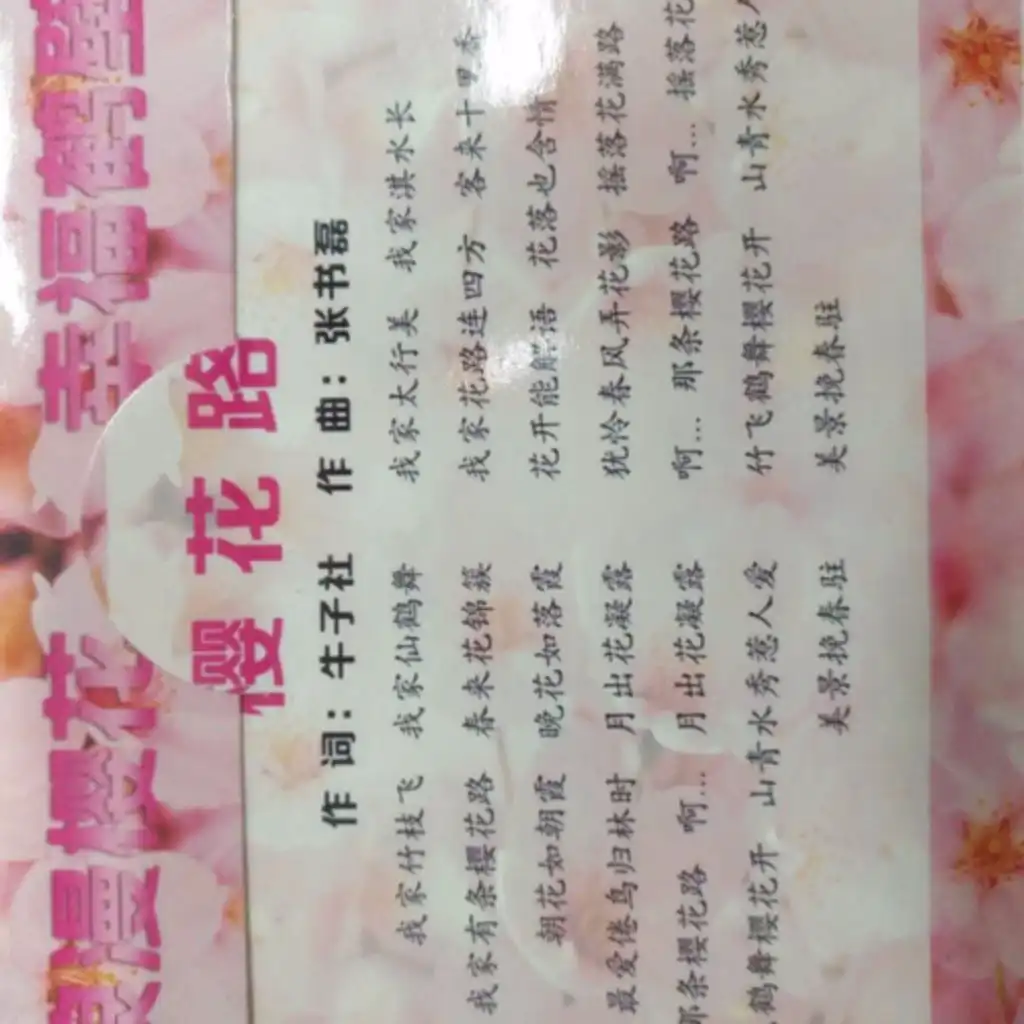 浪漫樱花 幸福鹤壁
樱花路
作词：牛子社 作曲：张书磊
我家竹枝飞 我家仙鹤舞 我家太行美 我家淇水长
我家有条樱花路 春来花锦簇 我家花路连四方 客来十里香
朝花如朝霞 晚花如落霞 花开能解语 花落也含情
最爱倦鸟归林时 月出花凝露 犹怜春风弄花影 摇落花满路
那条樱花路 啊… 月出花凝露 啊… 那条樱花路 啊… 摇落花
鹤舞樱花开 山青水秀惹人爱 竹飞鹤舞樱花开 山青水秀惹人
美景挽春驻 美景挽春驻